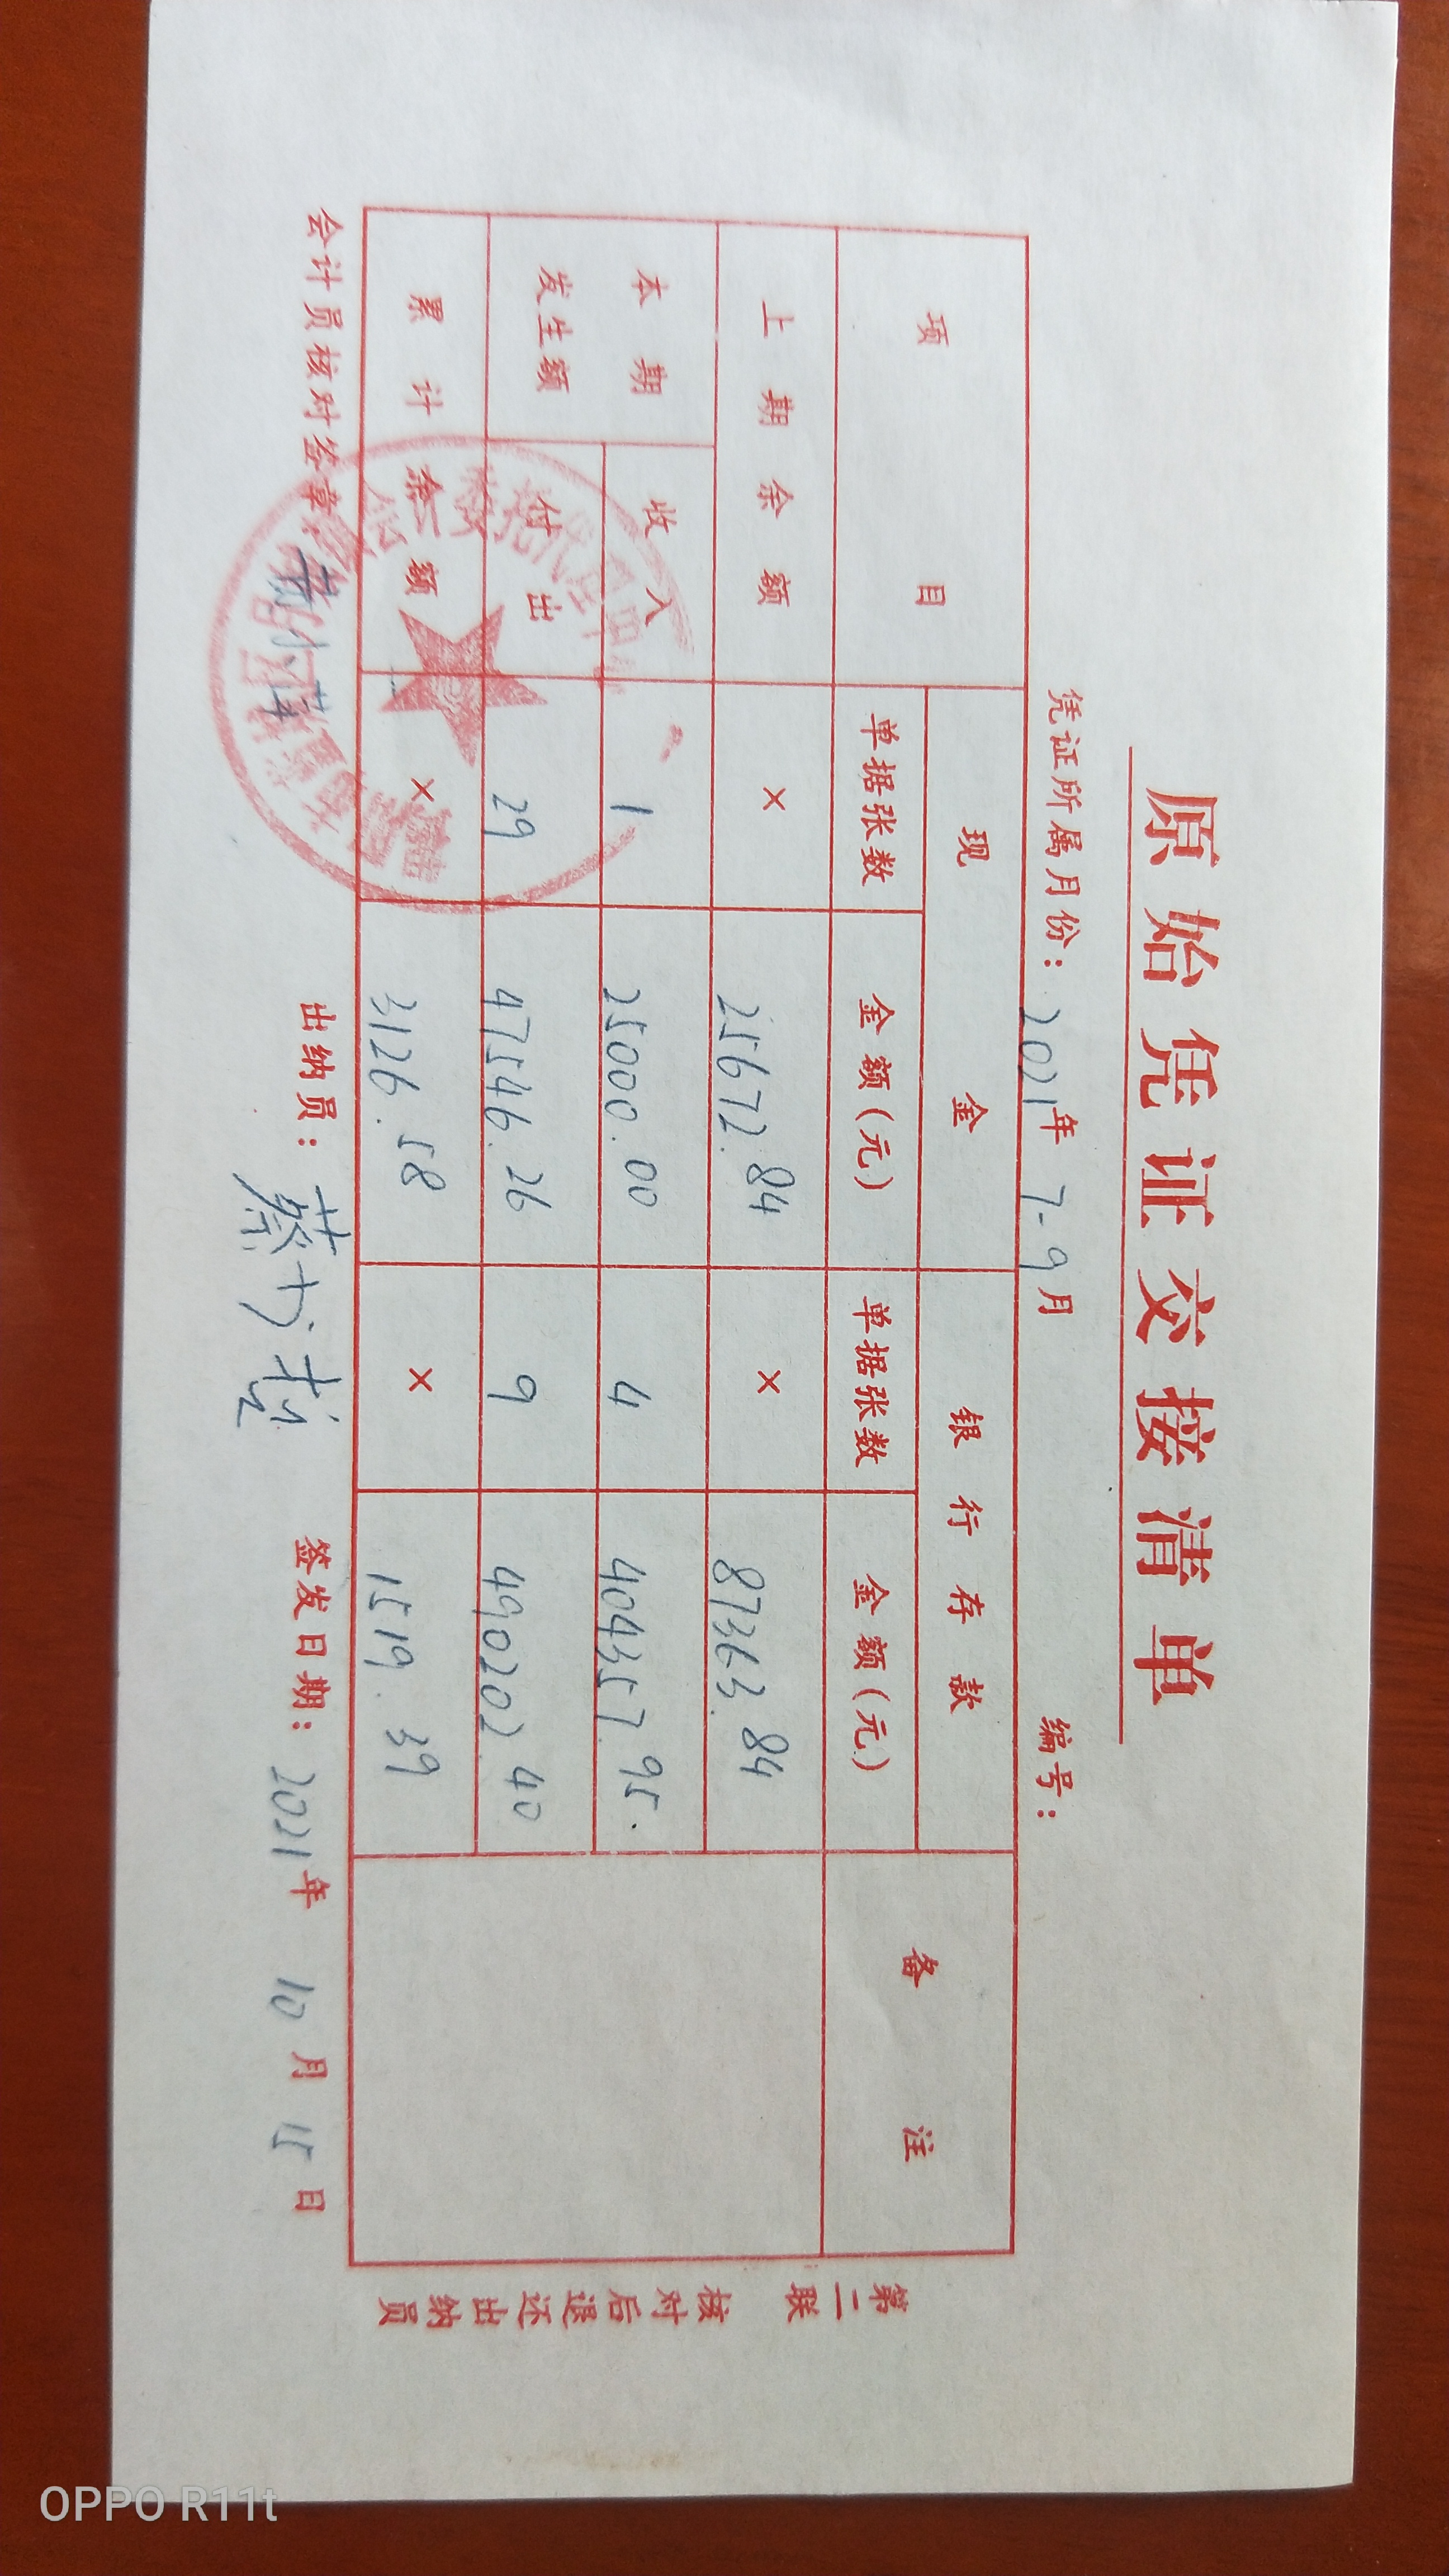 原始凭证交接清单
凭证所属月份：2021年 7-9月 编号：
项目 现金 银行存款 备注
单据张数 金额(元) 单据张数 金额(元)
上期余额 × 25672.84 × 87363.84
本期发生额 收入 1 25000.00 4 404357.95
付出 29 47546.26 9 490202.40
累计余额 × 3126.58 × 1519.39
会计员核对签章： 出纳员： 签发日期：2021年 10月 15日
第二联 核对后退还出纳员
OPPO R11t